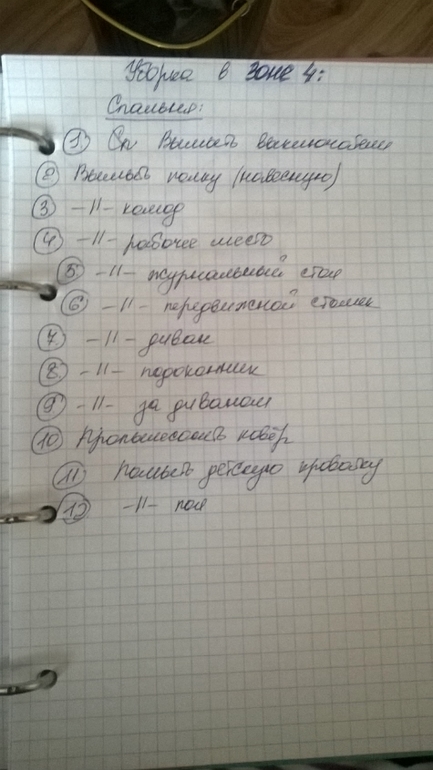 Уборка в зоне 4:
Спальня:
1 Сп Вымыть выключатели
2 Вымыть полку (навесную)
3 -//- комод
4 -//- рабочее место
5 -//- журнальный стол
6 -//- передвижной столик
7 -//- диван
8 -//- подоконник
9 -//- за диваном
10 Пропылесосить ковёр
11 Помыть детскую кроватку
12 -//- пол